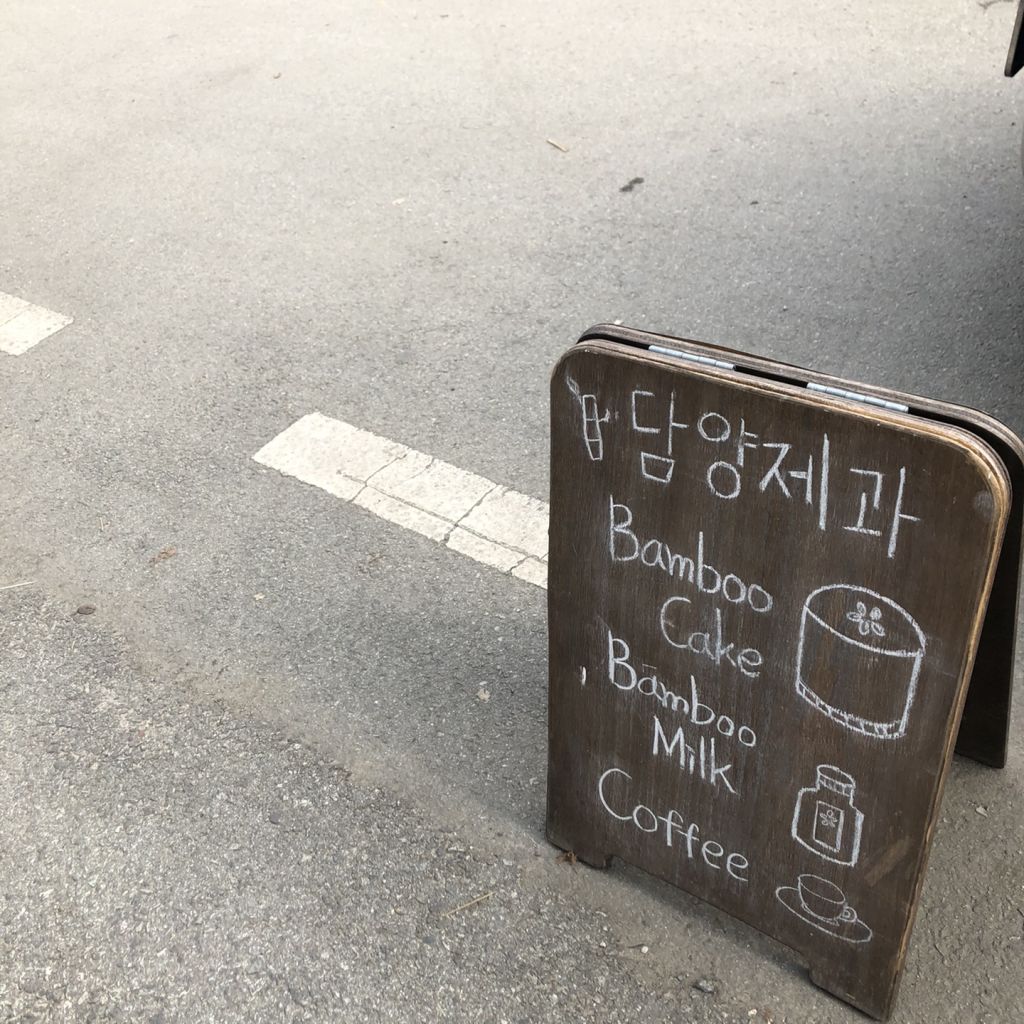 담양제과
Bamboo
Cake
Bamboo
Milk
Coffee